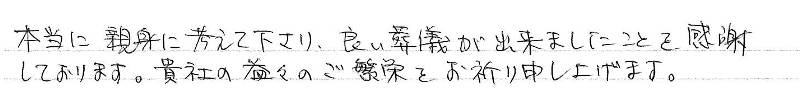 本当に親身に考えて下さり、良い葬儀が出来ましたことを感謝
しております。貴社の益々のご繁栄をお祈り申し上げます。